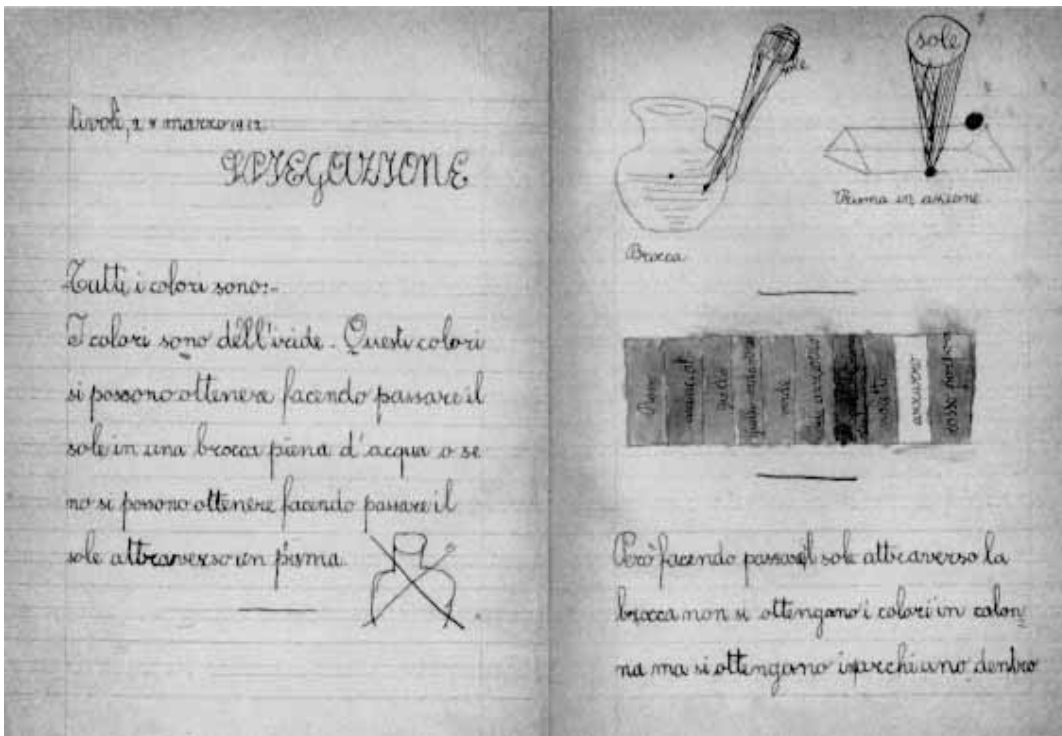 tivoli, 2 marzo 1912
SPIEGAZIONE
Tutti i colori sono:-
I colori sono dell'iride. Questi colori
si possono ottenere facendo passare il
sole in una brocca piena d'acqua o se
no si possono ottenere facendo passare il
sole attraverso un prisma
sole
sole
Prisma in azione
Brocca
giallo
verde
violetto
Però facendo passare il sole attraverso la
brocca non si ottengano i colori in colon
na ma si ottengano i archi uno dentro